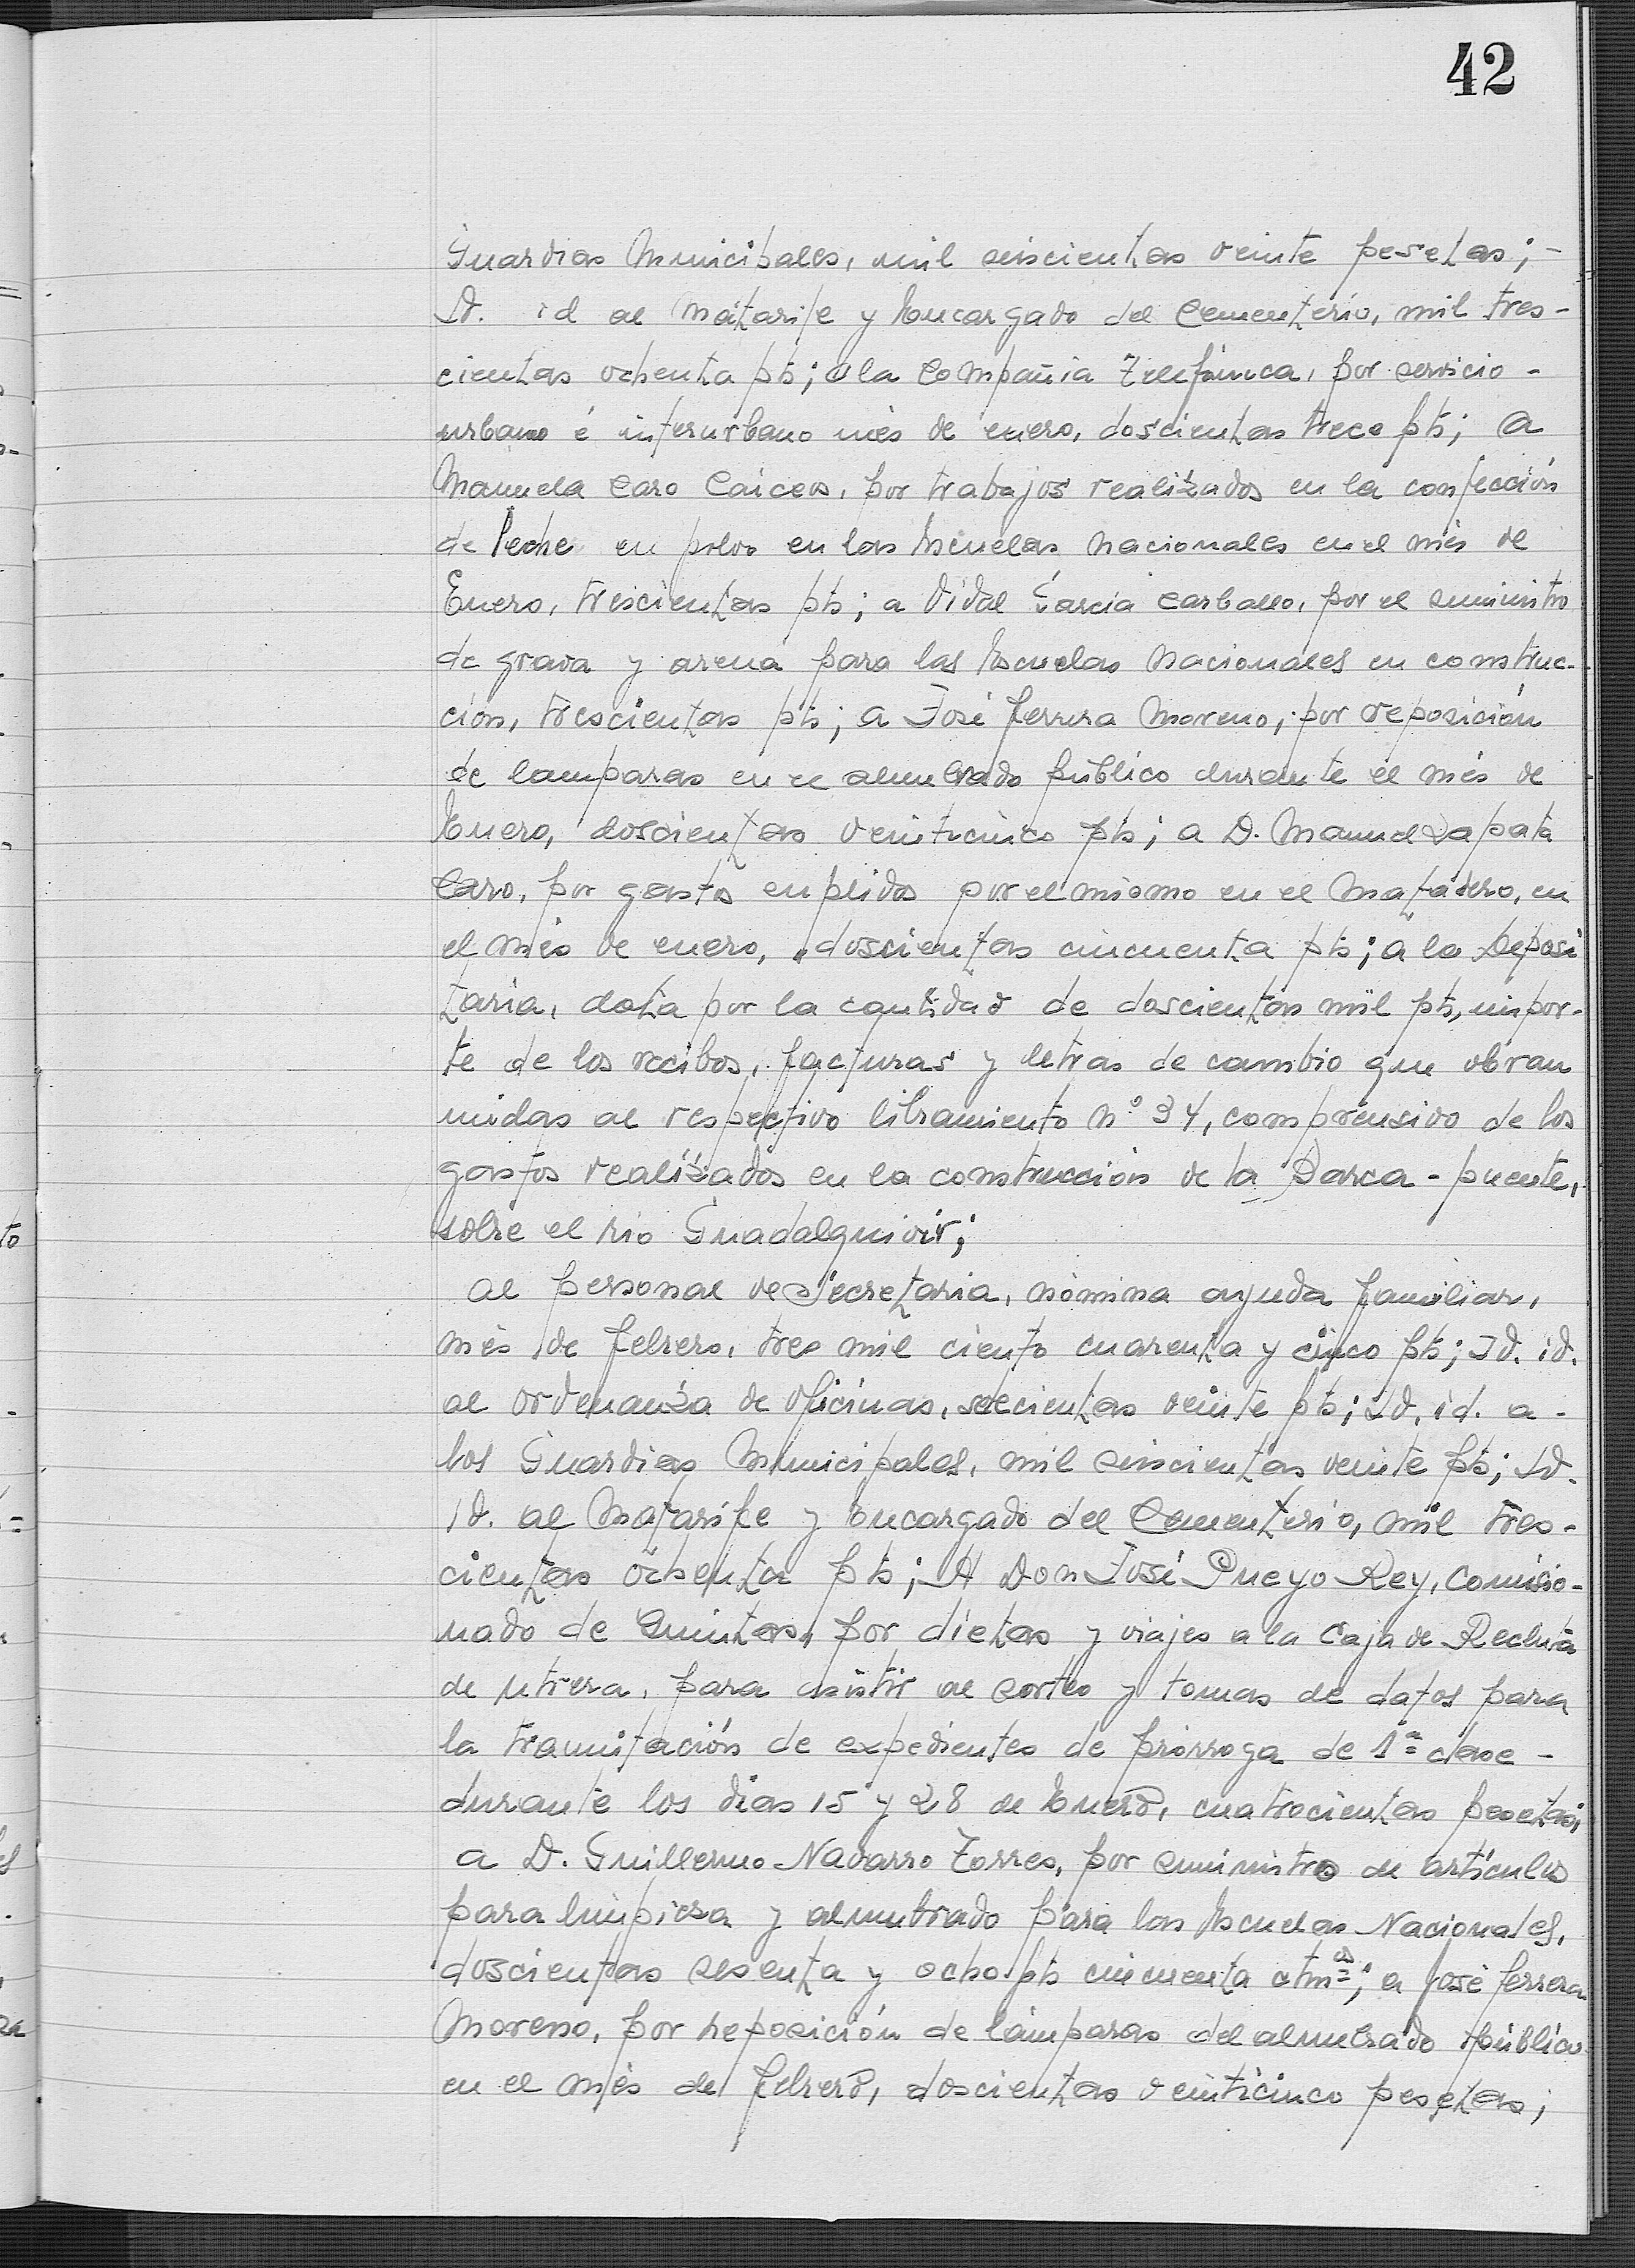 42
Guardias Municipales, mil seiscientas veinte pesetas;-
Id. id al Matarife y Encargado del Cementerio, mil tres-
cientas ochenta pts; a la Compañia Telefónica, por servicio-
urbano é interurbano més de enero, doscientas trece pts; a
Manuela Caro Caiceo, por trabajos realizados en la confección
de leche en polvo en las Escuelas Nacionales en el més de
Enero, trescientas pts; a Vidal García Carballo, por el suministro
de grava y arena para las Escuelas Nacionales en construc-
ción, trescientas pts; a José Ferrera Moreno, por reposición
de lamparas en el alumbrado público durante el més de
Enero, doscientas veinticinco pts; a D. Manuel Zapata
Caro, por gastos suplidos por el mismo en el Matadero, en
el més de enero, doscientas cincuenta pts; a la Deposi
taria, data por la cantidad de doscientas mil pts, impor-
te de los recibos, facturas y letras de cambio que obran
unidas al respectivo libramiento nº 34, comprensivo de los
gastos realizados en la construcción de la Barca-puente,
sobre el rio Guadalquivir;
al personal de Secretaria, nómina ayuda familiar,
més de febrero, tres mil ciento cuarenta y cinco pts; Id. id.
al ordenanza de oficinas, setecientas veinte pts; Id. id. a-
los Guardias Municipales, mil seiscientas veinte pts; Id.
id. al Matarife y Encargado del Cementerio, mil tres-
cientas ochenta pts; A Don José Pueyo Rey, Comisio-
nado de Quintas, por dietas y viajes a la Caja de Recluta
de Utrera, para asistir al sorteo y tomas de datos para
la tramitación de expedientes de prórroga de 1ª clase-
durante los dias 15 y 28 de Enero, cuatrocientas pesetas;
a D. Guillermo Navarro Torres, por suministro de artículos
para limpieza y alumbrado para las Escuelas Nacionales,
doscientas sesenta y ocho pts cincuenta ctmos; a José Ferrera
Moreno, por reposición de lámparas del alumbrado público
en el més de febrero, doscientas veinticinco pesetas;